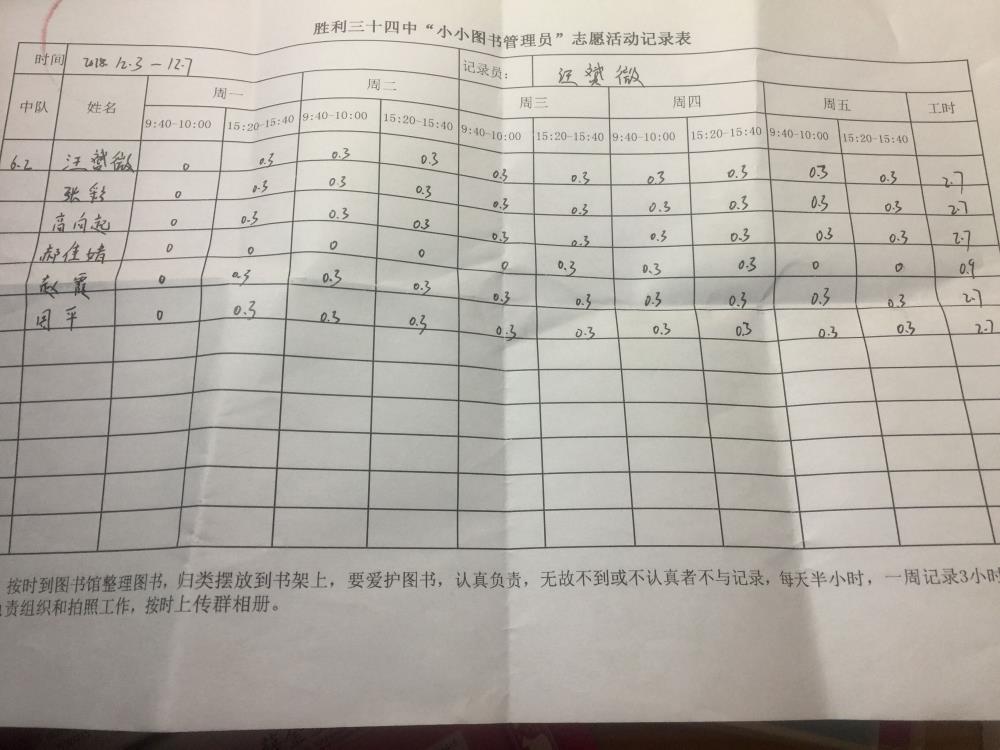 胜利三十四中“小小图书管理员”志愿活动记录表
时间 2018.12.3 — 12.7 记录员: 汪赟微
中队 姓名 周一 周二 周三 周四 周五 工时
9:40-10:00 15:20-15:40 9:40-10:00 15:20-15:40 9:40-10:00 15:20-15:40 9:40-10:00 15:20-15:40 9:40-10:00 15:20-15:40
6.2 汪 微 0 0.3 0.3 0.3 0.3 0.3 0.3 0.3 0.3 0.3 2.7
张彩 0 0.3 0.3 0.3 0.3 0.3 0.3 0.3 0.3 0.3 2.7
高向起 0 0.3 0.3 0.3 0.3 0.3 0.3 0.3 0.3 0.3 2.7
郝佳婧 0 0 0 0 0 0.3 0.3 0.3 0 0 0.9
赵霞 0 0.3 0.3 0.3 0.3 0.3 0.3 0.3 0.3 0.3 2.7
周平 0 0.3 0.3 0.3 0.3 0.3 0.3 0.3 0.3 0.3 2.7
按时到图书馆整理图书，归类摆放到书架上，要爱护图书，认真负责，无故不到或不认真者不与记录，每天半小时，一周记录3小时
责组织和拍照工作，按时上传群相册。